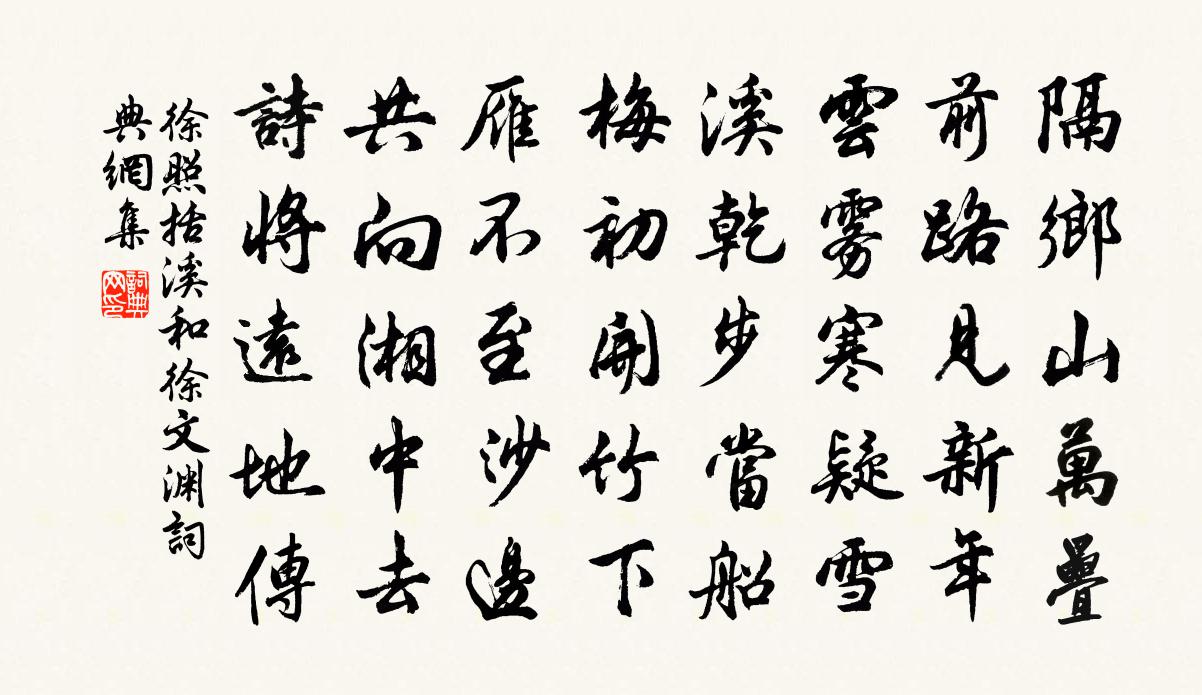 隔鄉山萬疊
前路見新年
雲雾寒疑雪
溪乾步當船
梅初開竹下
雁不至沙邊
共向湘中去
詩將遠地傳
徐照括溪和徐文渊詞
典網集
詞典網印